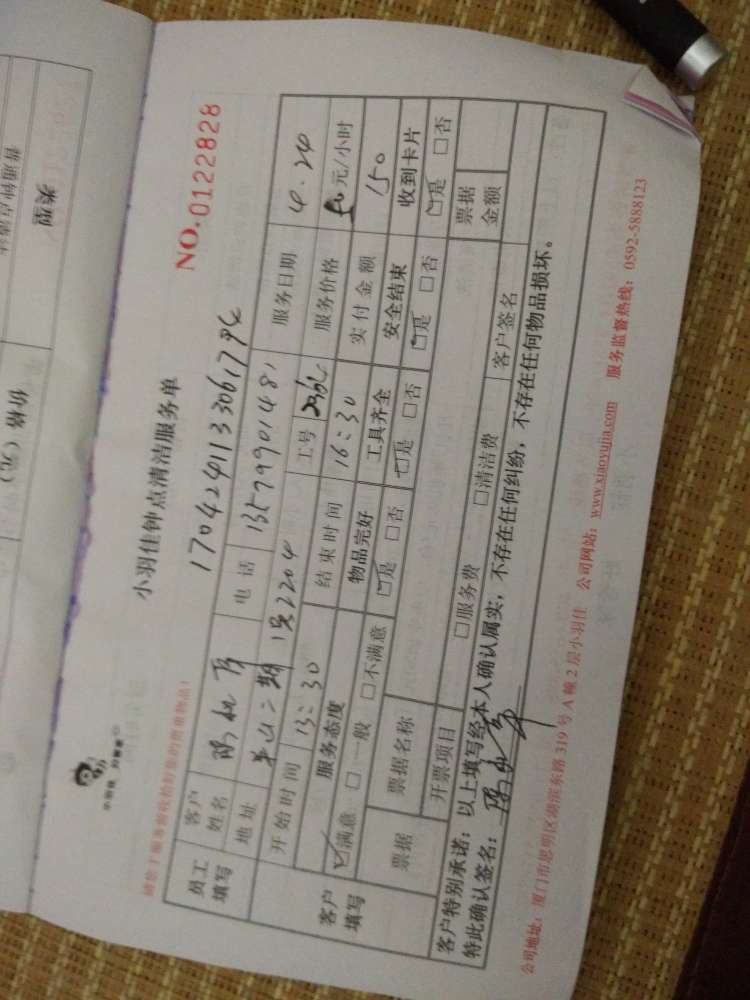 小羽佳钟点清洁服务单
NO.0122828
请您于服务前收拾好您的贵重物品！
1704241133061794
员工填写 客户姓名 电话 13799901481 服务日期 4.24
地址 半山二期 1号2204 工号 服务价格 50元/小时
开始时间 13:30 结束时间 16:30 实付金额 150
客户填写 服务态度 物品完好 工具齐全 安全结束 收到卡片
☑满意 □一般 □不满意 ☑是 □否 ☑是 □否 ☑是 □否 ☑是 □否
票据 票据名称 票据金额
开票项目 □服务费 □清洁费 客户签名
客户特别承诺：以上填写经本人确认属实，不存在任何纠纷，不存在任何物品损坏。
特此确认签名：
公司地址：厦门市思明区湖滨东路319号A幢2层小羽佳 公司网站：www.xiaoyujia.com 服务监督热线：0592-5888123